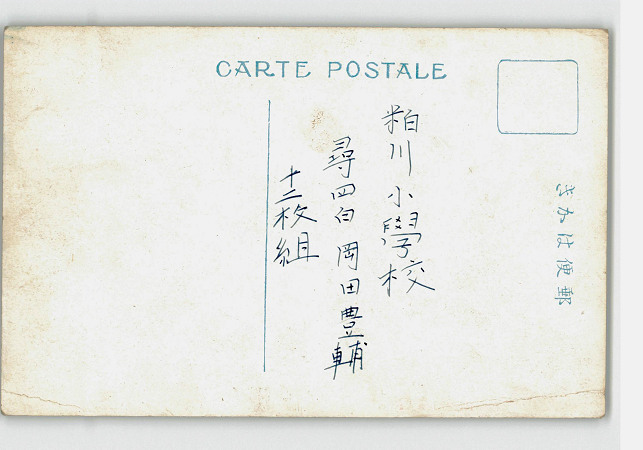 CARTE POSTALE
郵便はかき
粕川小學校
尋四白 岡田豊輔
十二枚組